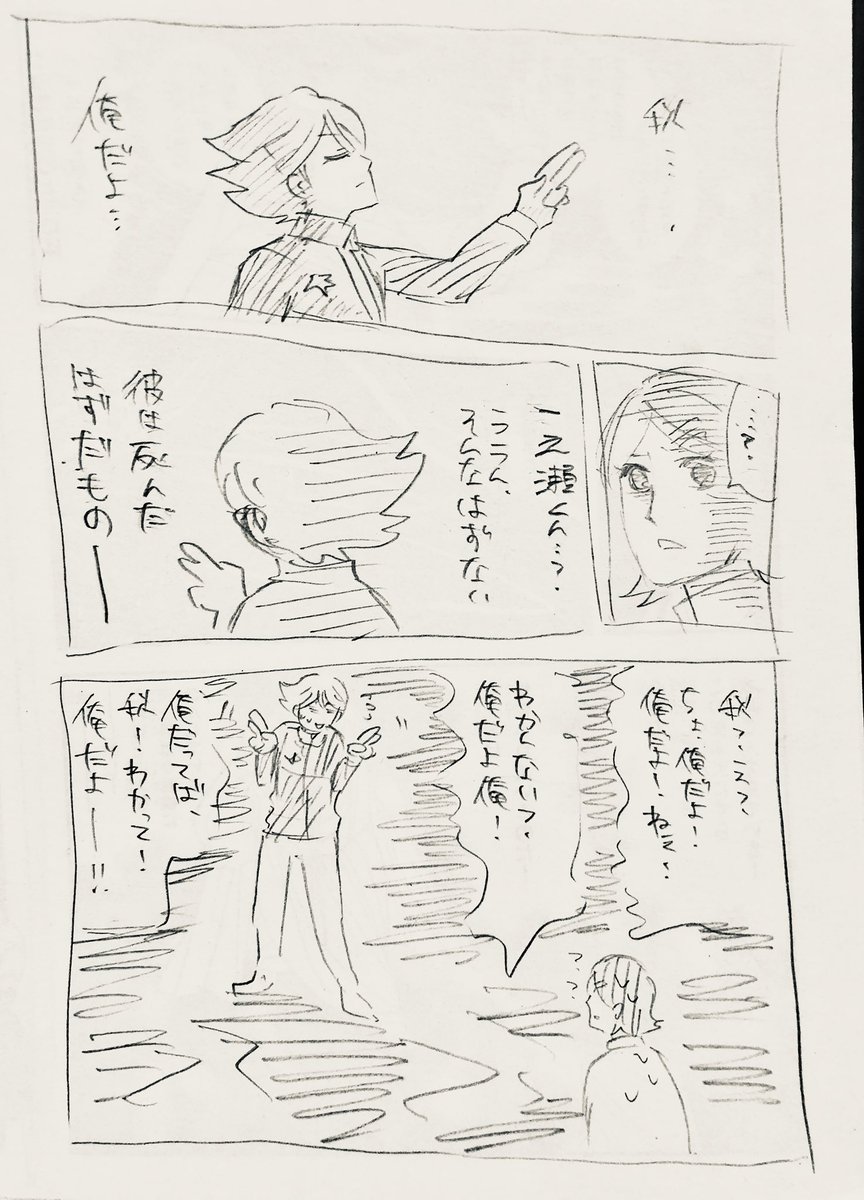 秋…
俺だよ…
…?
一之瀬くん…?
ううん、
そんなはずない
彼は死んだ
はずだもの――
秋?、えっ、
ちょ、俺だよ!
俺だよー、ねぇ!
わかんない?、
俺だよ俺!
俺だってば、
秋ー!わかって!
俺だよ――!!
???